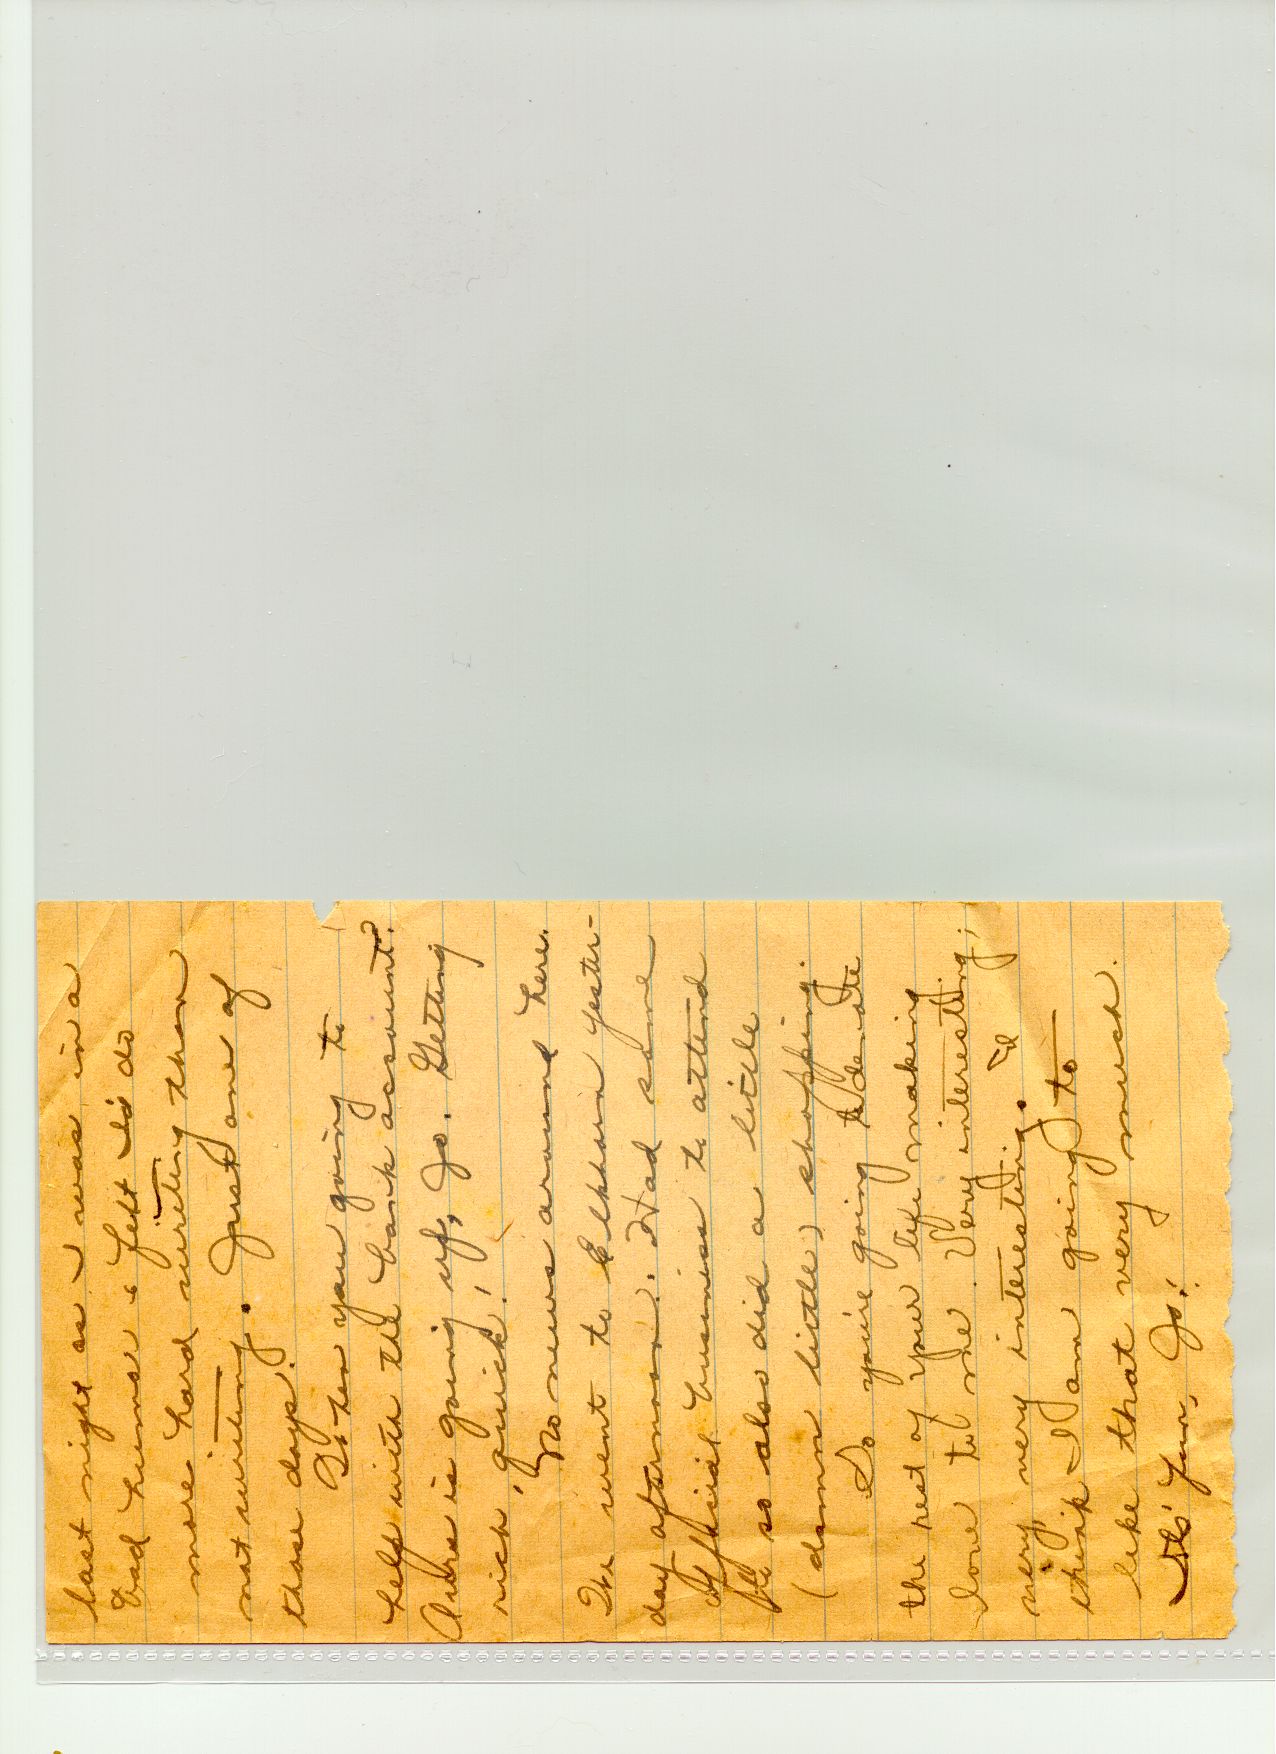 last night as I was in a
bad humor & felt I'd do
more hard writing than
not writing. Just one of
those days.
So then you going to
help with the bank account.
Ours is going up, Jo. Getting
rich, quick!
No news around here.
We went to Elkhorn yester-
day afternoon. Had some
official business to attend
so also did a little
(damn little) shopping.
So you're going to devote
the rest of your life making
love to me. Very interesting;
very, very interesting. I'd
think I am going to
like that very much.
It's fun, Jo!